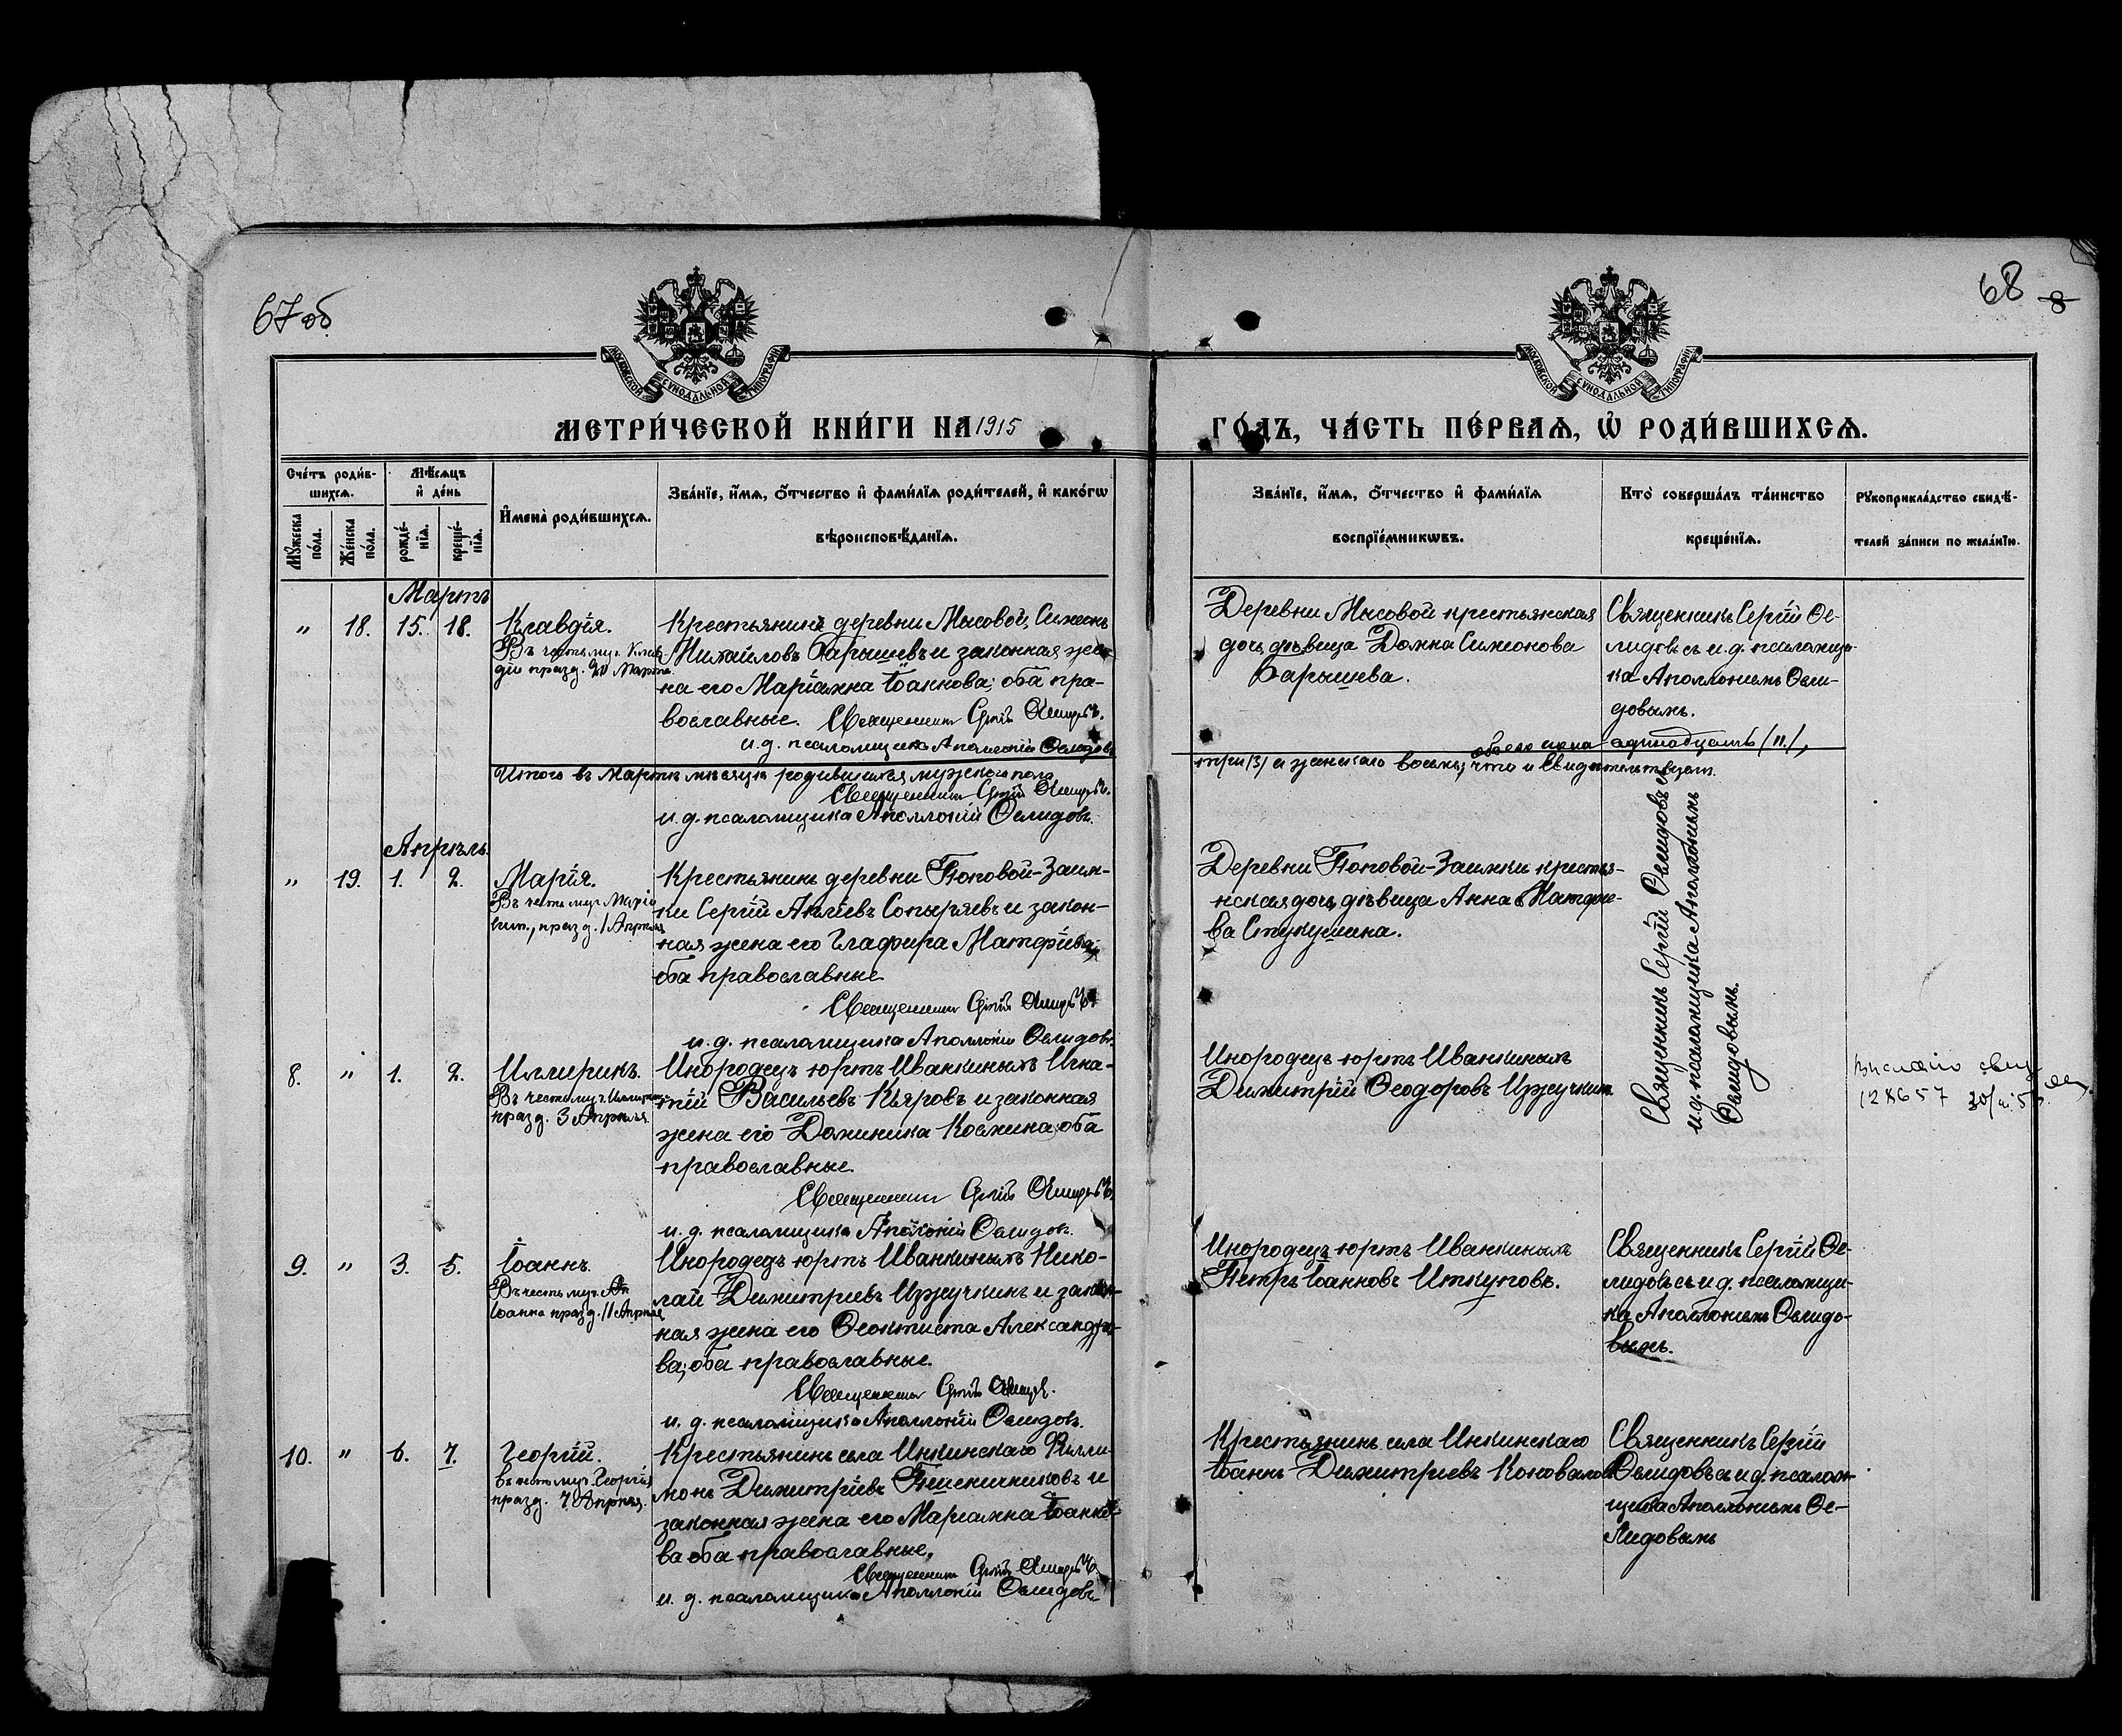 67 об
68
8
МОСКОВСКОЙ СУНОДАЛЬНОЙ ТИПОГРАФІИ
МОСКОВСКОЙ СУНОДАЛЬНОЙ ТИПОГРАФІИ
МЕТРИ́ЧЕСКОЙ КНИ́ГИ НА 1915
ГО́ДЪ, ЧА́СТЬ ПЕ́РВАѦ, Ѡ РОДИ́ВШИХСѦ.
Сче́тъ роди́в-
шихсѧ.
Мꙋжеска
по́ла.
Же́нска
по́ла.
Мѣ́сѧцъ
и҆ де́нь
рожде́-
нїѧ.
креще́-
нїѧ.
И҆мена̀ роди́вшихсѧ.
Зва́нїе, и҆́мѧ, ѻ҆́тчество и҆ фами́лїѧ роди́телей, и҆ како́гѡ
вѣроисповѣ́данїѧ.
Зва́нїе, и҆́мѧ, ѻ҆́тчество и҆ фами́лїѧ
воспрїе́мникѡвъ.
Кто̀ соверша́лъ та́инство
креще́нїѧ.
Рꙋкоприкла́дство свидѣ́-
телей за́писи по жела́нїю.
Мартъ
" 18. 15. 18.
Клавдія.
Въ честь муч. Клав
діи празд. 20 Марта.
Крестьянинъ деревни Мысовой, Симеонъ
Михайловъ Барышевъ и законная же-
на его Маріамна Іоаннова; оба пра-
вославные. Священникъ Сергій
и. д. псаломщика Аполлоній
Деревни Мысовой крестьянская
дочь дѣвица Домна Симонова
Барышева.
Священникъ Сергій
съ и. д. псаломщи-
ка Аполлоніемъ
довымъ.
Итого въ Мартѣ мѣсяцѣ родившихся мужского пола
три /3/ и женскаго восемь; обоего пола одинадцать /11/,
что и свидѣтельствуемъ.
Священникъ Сергій
и. д. псаломщика Аполлоній
Апрѣль.
" 19. 1. 2.
Марія.
Въ честь муч. Маріи
празд. 1 Апрѣля
Крестьянинъ деревни Поповой-Заим-
ки Сергій Сопыряевъ и закон-
ная жена его Глафира Матфіева;
оба православные
Священникъ Сергій
и. д. псаломщика Аполлоній
Деревни Поповой-Заимки крестья-
нская дочь дѣвица Анна Матфіе-
ва Стукушина.
Священникъ Сергій
и. д. псаломщика Аполлоніемъ
8. " 1. 2.
Иллирикъ.
Въ честь муч.
празд. 3 Апрѣля
Инородецъ юртъ Иванкиныхъ Игна-
тій Васильевъ Кяровъ и законная
жена его Доминика Космина; оба
православные
Священникъ Сергій
и. д. псаломщика Аполлоній
Инородецъ юртъ Иванкиныхъ
Димитрій Ѳеодоровъ Ижучкинъ
128657
9. " 3. 5.
Іоаннъ.
Въ честь муч.
Іоанна празд. 11 Апрѣля
Инородецъ юртъ Иванкиныхъ Нико-
лай Димитріевъ Ижучкинъ и закон-
ная жена его Ѳеоктиста Александро-
ва; оба православные.
Священникъ Сергій
и. д. псаломщика Аполлоній
Инородецъ юртъ Иванкиныхъ
Петръ Іоанновъ Иткуповъ.
Священникъ Сергій
съ и. д. псаломщи-
ка Аполлоніемъ
вымъ.
10. " 6. 7.
Георгій.
Въ честь муч. Георгія
празд. 7 Апрѣля.
Крестьянинъ села Инкинскаго Филли-
монъ Димитріевъ Пшеничниковъ и
законная жена его Маріамна Іоанно-
ва оба православные.
Священникъ Сергій
и. д. псаломщика Аполлоній
Крестьянинъ села Инкинскаго
Іоаннъ Димитріевъ Коноваловъ
Священникъ Сергій
съ и. д. псалом-
щика Аполлоніемъ